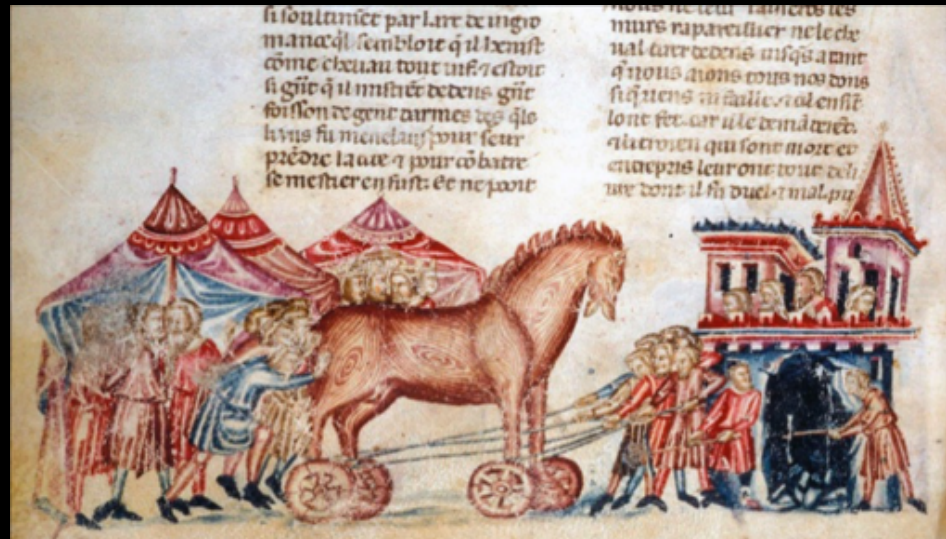 si soultiment par lart de nigro
mance ql sembloit q il henist
cōme cheuau tout uif. ⁊ estoit
si gñt q il mistrēt dedens gñt
foison de gent darmes des qls
fu menelaus pour
prēdre la cite ⁊ pour cōbatre
se mestier en fust. Et ne pont
nous ne leur les
murs rapareillier ne le che
ual tirer dedens iusqs a tant
q nous aions tous nos dons
si q riens
lont fet. car il le demāderēt.
qui sont mort et
entrepris leur ont tout deli
ure dont il fu duel ⁊ mal.